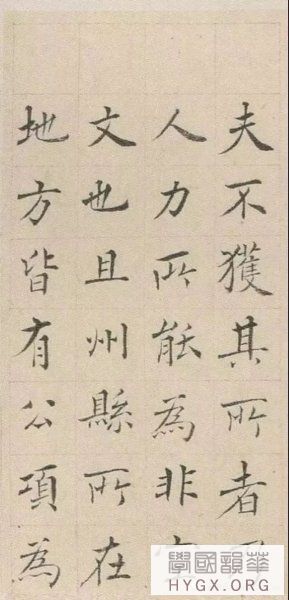 夫不獲其所者
人力所能為非
文也且州縣所在
地方皆有公項為
華韻國學
HYGX.ORG